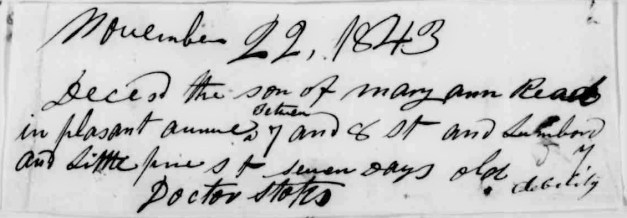 November 22, 1843
Decesd the son of mary ann Read
in plasant avnue between 7 and 8 st and Lumbard
and Little pine st seven Days old. debility
Doctor Stoks